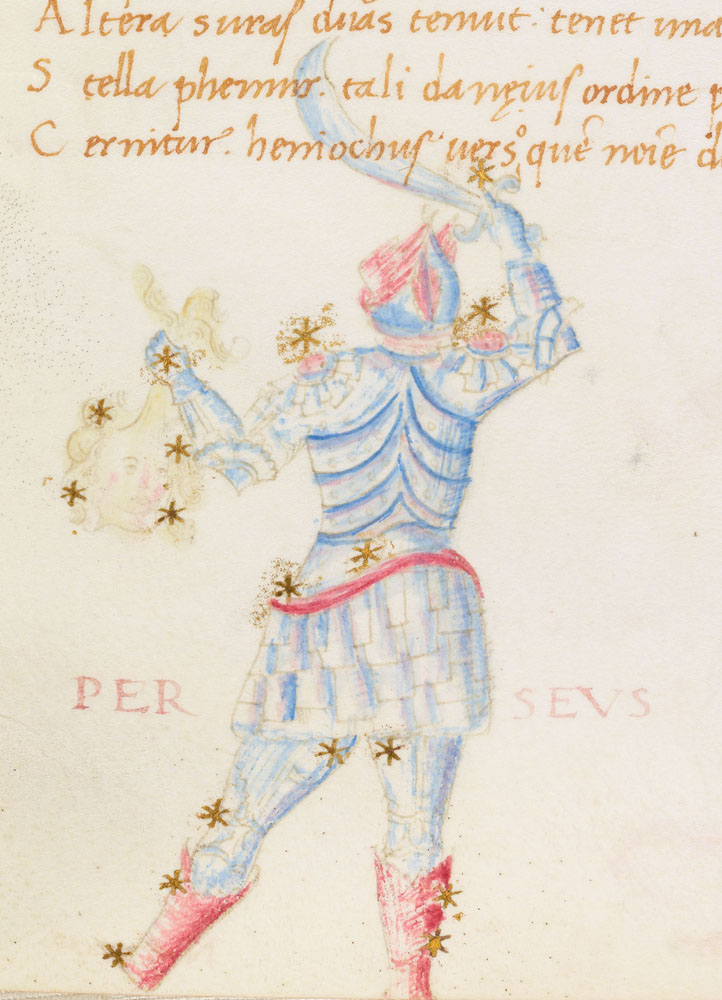 Altera suras duas temut: tenet una
Stella phemur. tali danęius ordine p
Cernitur. heniochus versº quē noīe d
PER SEVS